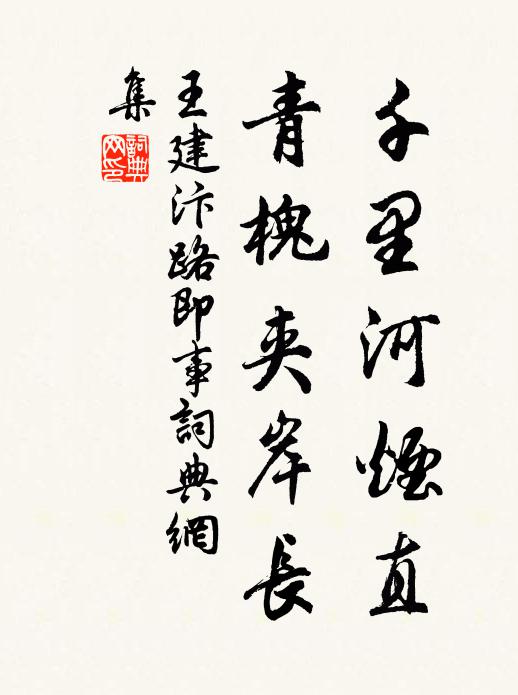 千里河煙直
青槐夾岸長
王建汴路即事詞典網
集
詞典
网印